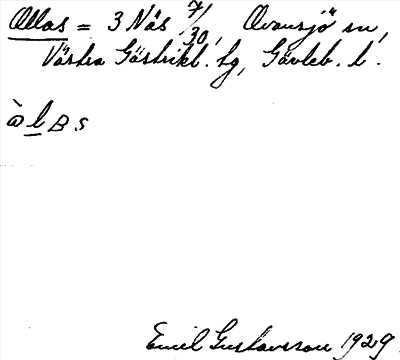 Ollas = 3 Näs 7/30, Ovansjö sn,
Västra Gästrikl. hg, Gävleb. l.
òlBs
Emil Gustavsson 1929